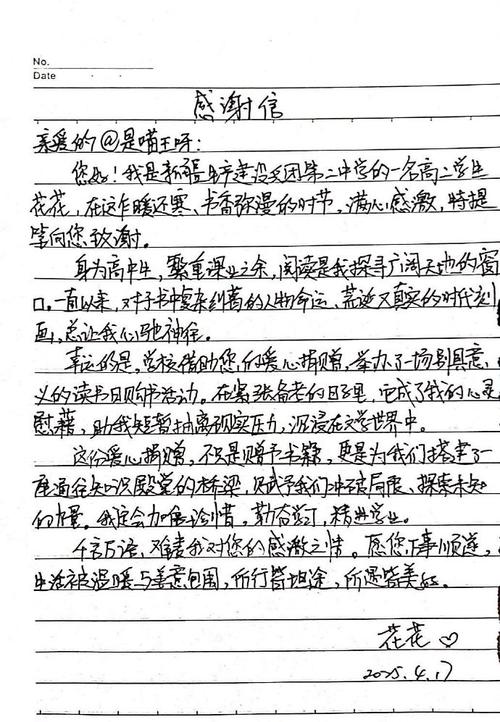 No.
Date
感谢信
亲爱的@是喵王呀:
您好!我是新疆生产建设兵团第二中学的一名高二学生
花花,在这乍暖还寒、书香弥漫的时节,满心感激,特提
笔向您致谢。
身为高中生,繁重课业之余,阅读是我探寻广阔天地的窗
口。一直以来,对于书中复杂纠葛的人物命运、荒诞又真实的时代刻
画,总让我心驰神往。
幸运的是,学校借助您的爱心捐赠,举办了一场别具意
义的读书日购书活动。在紧张备考的日子里,它成了我的心灵
慰藉,助我短暂抽离现实压力,沉浸在文学世界中。
这份爱心捐赠,不只是赠予书籍,更是为我们搭建了一
座通往知识殿堂的桥梁,赋予我们冲破局限、探索未知
的力量。我定会加倍珍惜,勤奋学习,精进学业。
千言万语,难书我对您的感激之情。愿您万事顺遂,
生活被温暖与善意包围,所行皆坦途,所遇皆美好。
花花♡
2025.4.17